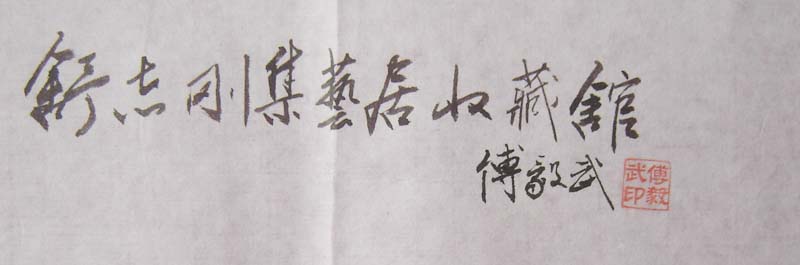 舒志刚集藝居收藏舘
傅毅武
傅毅武印